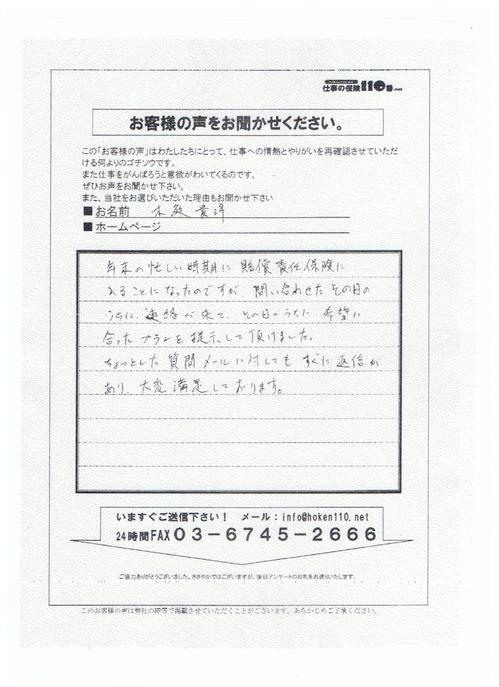 仕事の保険110番.net
お客様の声をお聞かせください。
この「お客様の声」はわたしたちにとって、仕事への情熱とやりがいを再確認させていただ
ける何よりのゴチソウです。
また仕事をがんばろうと意欲がわいてくるのです。
ぜひお声をお聞かせ下さい。
また、当社をお選びいただいた理由もお聞かせ下さい
■お名前 木庭 貴
■ホームページ
年末の忙しい時期に賠償責任保険に
入ることになったのですが、問い合わせたその日の
うちに、連絡が来て、その日のうちに希望に
合ったプランを提示して頂けました。
ちょっとした質問メールに対してもすぐに返信が
あり、大変満足しております。
いますぐご送信下さい！ メール：info@hoken110.net
24時間FAX 03-6745-2666
ご協力ありがとうございました。ささやかではございますが、後日アンケートのお礼をお送りいたします。
このお客様の声は弊社の枠等で掲載させていただくことがございます。あらかじめご了承ください。